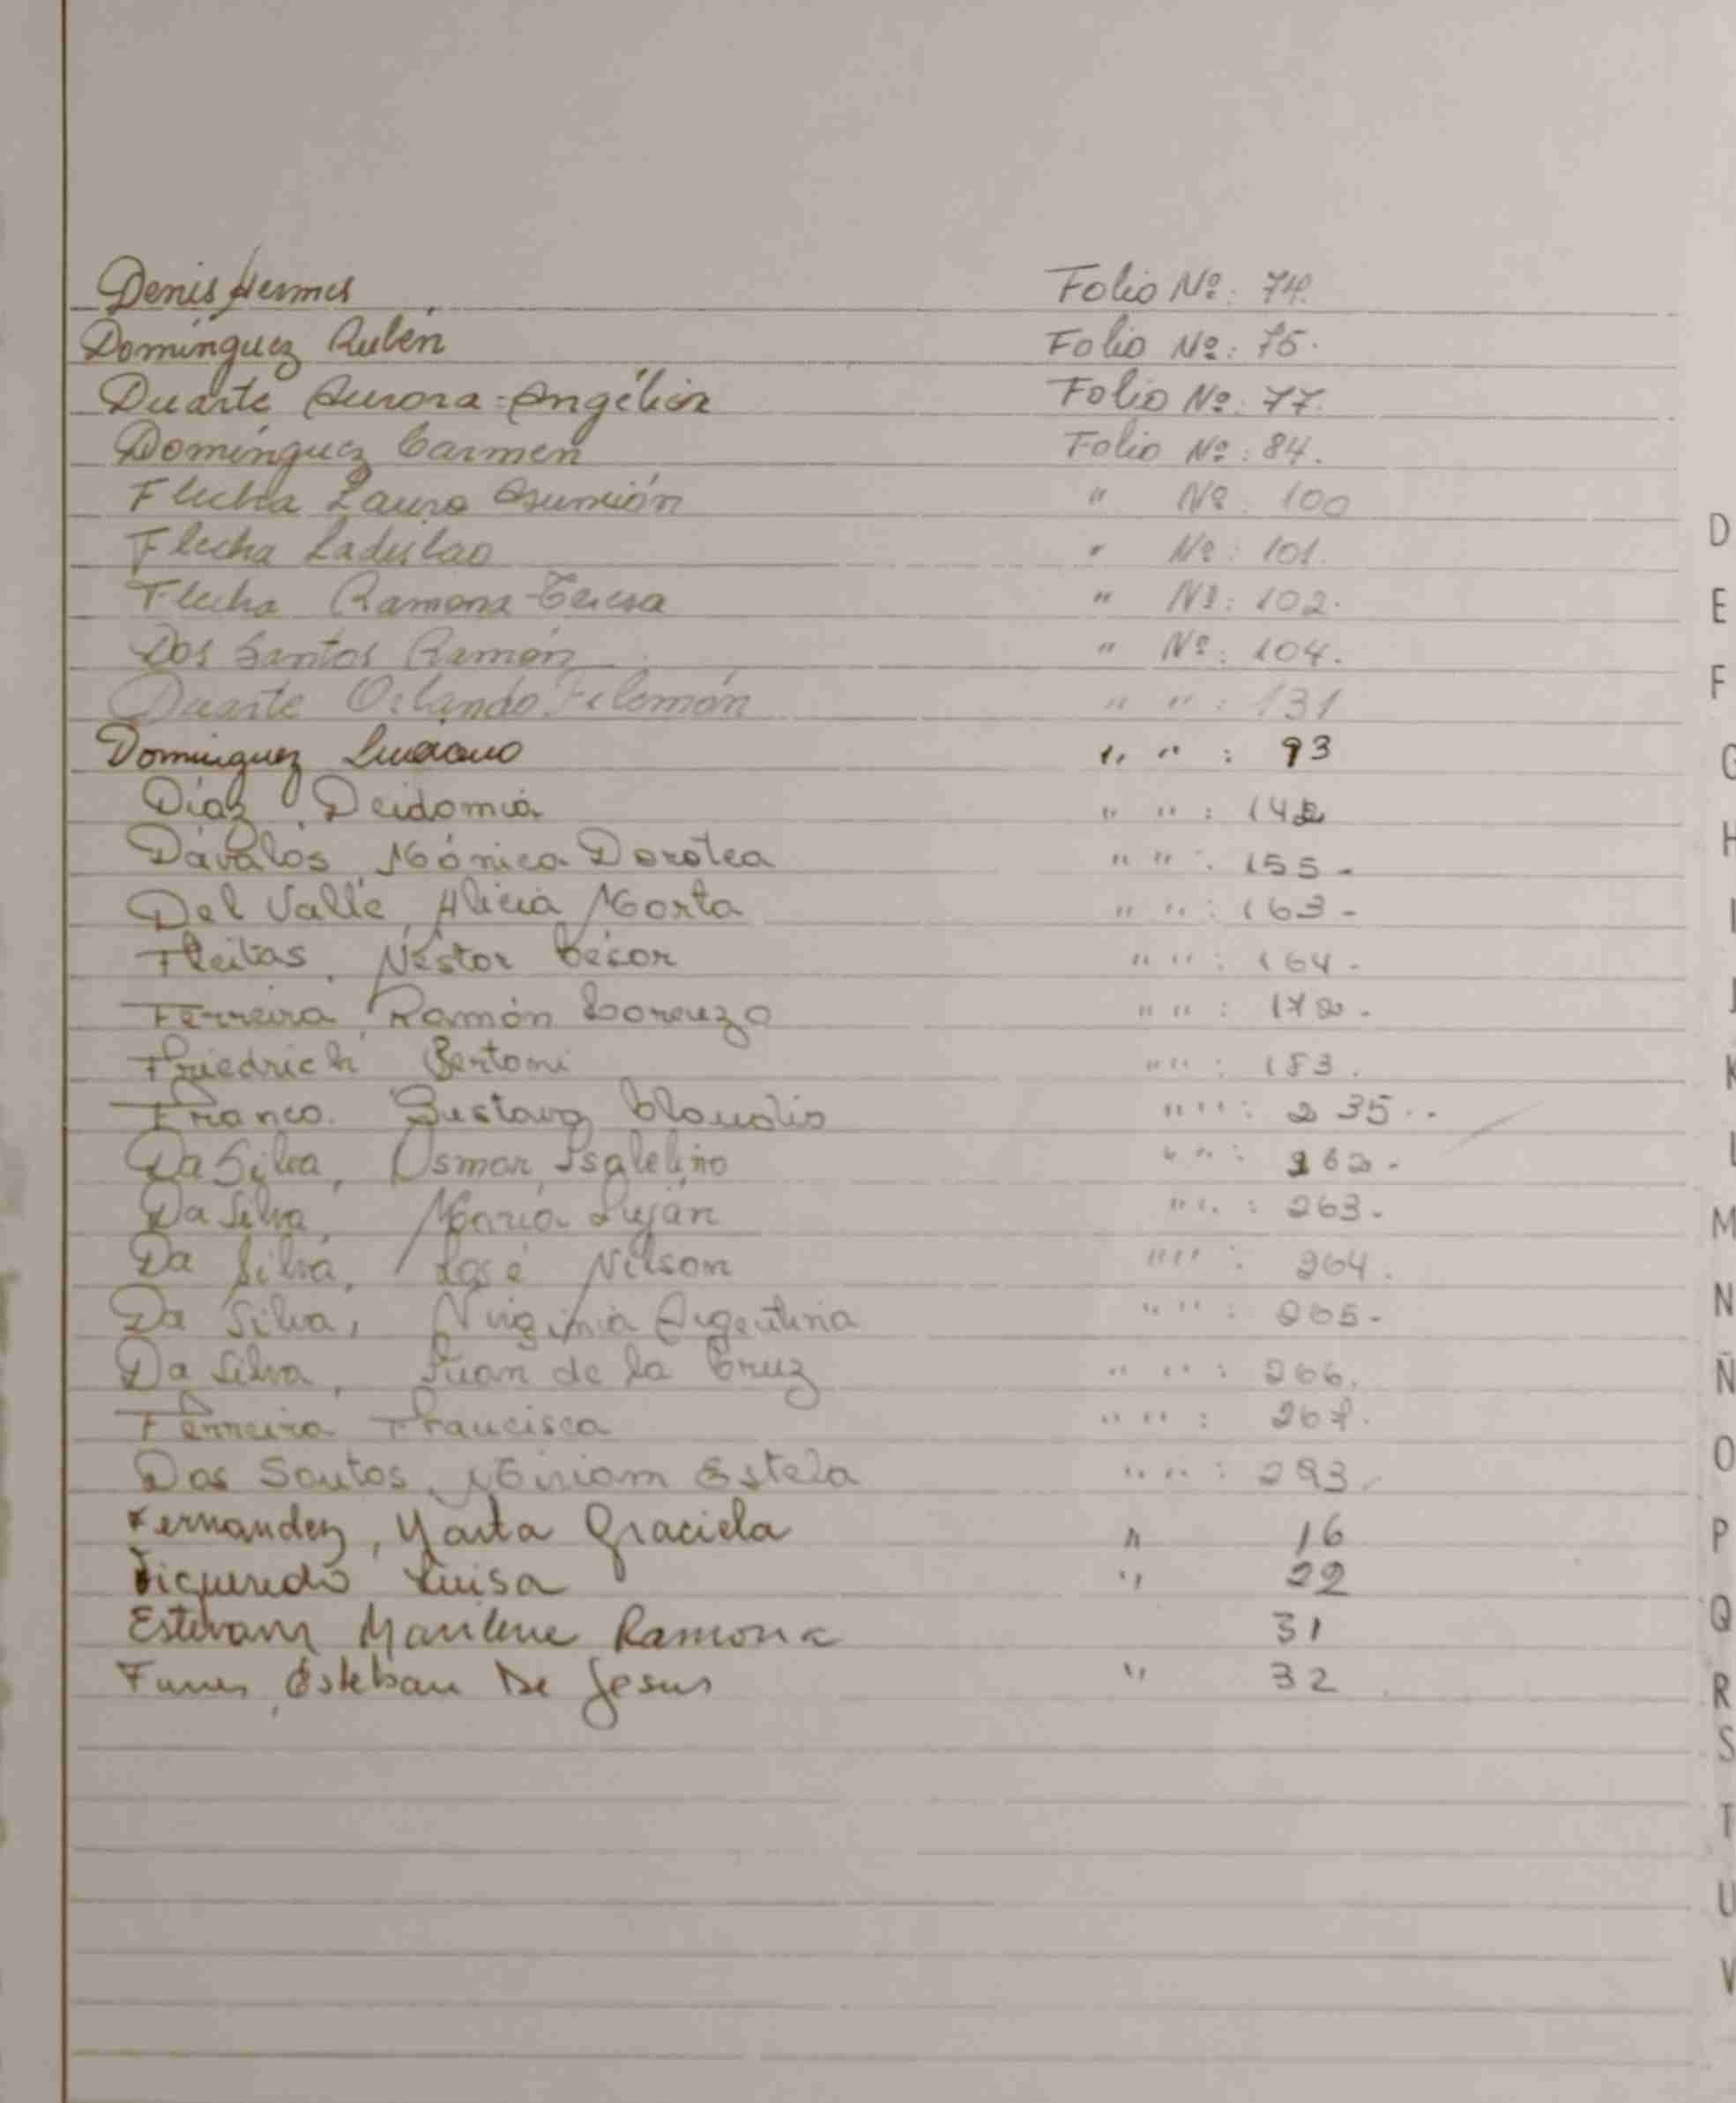 Denis Hermes Folio Nº: 74.
Domínguez Rubén Folio Nº: 75.
Duarte Aurora Angélica Folio Nº: 77.
Domínguez Carmen Folio Nº: 84.
Flecha Lauro Asunción " Nº: 100
Flecha Ladislao " Nº: 101.
Flecha Ramona Teresa " Nº: 102.
Dos Santos Ramón " Nº: 104.
Duarte Orlando Filemón " " : 131
Dominguez Luciano " " : 93
Díaz, Deidamia " " : 142
Dávalos, Mónica Dorotea " " : 155-
Del Valle, Alicia Marta " " : 163-
Fleitas, Néstor César " " : 164-
Ferreira, Ramón Lorenzo " " : 172.
Friedrich Bertoni " " : 183.
Franco. Gustavo Claudio " " : 235..
Da Silva, Osmar Isalelino " " : 262-
Da Silva, María Luján " " : 263-
Da Silva, José Nilson " " : 264.
Da Silva, Virginia Argentina " " : 265-
Da Silva, Juan de la Cruz " " : 266.
Ferreira Francisca " " : 267.
Dos Santos, Miriam Estela " " : 293.
Fernandez, Marta Graciela " 16
Figueredo Luisa " 22
Marilene Ramona 31
Funes, Esteban De Jesus " 32
D
E
F
G
H
I
J
K
L
M
N
Ñ
O
P
Q
R
S
T
U
V